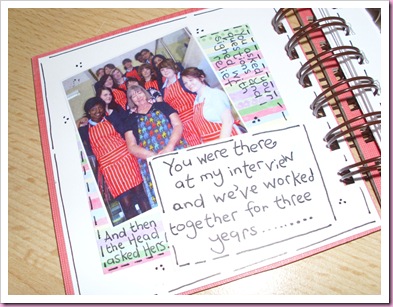 You asked your
questions
You were there
at my interview
and we've worked
together for three
years..........
And then
the Head
asked Hers!